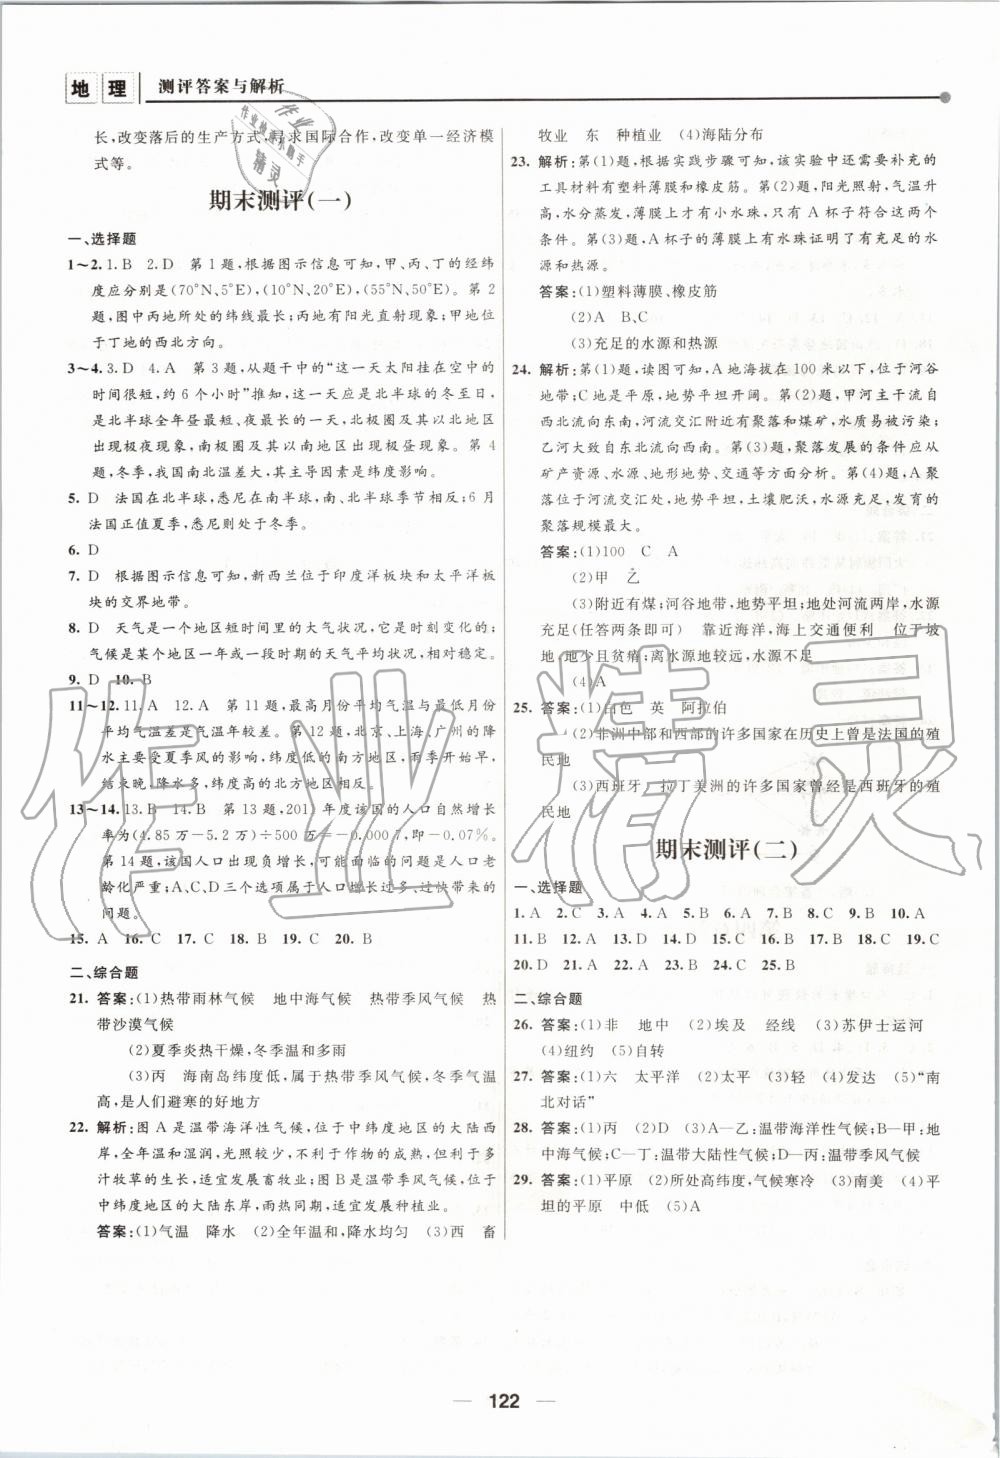 地理 测评答案与解析
长,改变落后的生产方式,寻求国际合作,改变单一经济模
式等。
期末测评(一)
一、选择题
1～2.1.B 2.D 第1题,根据图示信息可知,甲、丙、丁的经纬
度应分别是(70°N,5°E),(10°N,20°E),(55°N,50°E)。第2
题,图中丙地所处的纬线最长;丙地有阳光直射现象;甲地位
于丁地的西北方向。
3～4.3.D 4.A 第3题,从题干中的“这一天太阳挂在空中的
时间很短,约6个小时”推知,这一天应是北半球的冬至日,
是北半球全年昼最短、夜最长的一天,北极圈及其以北地区
出现极夜现象,南极圈及其以南地区出现极昼现象。第4
题,冬季,我国南北温差大,其主导因素是纬度影响。
5. D 法国在北半球,悉尼在南半球,南北半球季节相反;6月
法国正值夏季,悉尼则处于冬季。
6. D
7. D 根据图示信息可知,新西兰位于印度洋板块和太平洋板
块的交界地带。
8. D 天气是一个地区短时间里的大气状况,它是时刻变化的;
气候是某个地区一年或一段时期的天气平均状况,相对稳定。
9. D 10. B
11～12.11.A 12.A 第11题,最高月份平均气温与最低月份
平均气温差是气温年较差。第12题,北京、上海、广州的降
水主要受夏季风的影响,纬度低的南方地区,雨季开始早,
结束晚,降水多,纬度高的北方地区相反。
13～14.13.B 14.B 第13题,2011年度该国的人口自然增长
率为(4.85万-5.2万)÷500万=-0.0007,即-0.07%。
第14题,该国人口出现负增长,可能面临的问题是人口老
龄化严重;A、C、D三个选项属于人口增长过多、过快带来的
问题。
15. A 16. C 17. C 18. B 19. C 20. B
二、综合题
21. 答案:(1)热带雨林气候 地中海气候 热带季风气候 热
带沙漠气候
(2)夏季炎热干燥,冬季温和多雨
(3)丙 海南岛纬度低,属于热带季风气候,冬季气温
高,是人们避寒的好地方
22. 解析:图A是温带海洋性气候,位于中纬度地区的大陆西
岸,全年温和湿润,光照较少,不利于作物的成熟,但有利于多
汁牧草的生长,适宜发展畜牧业;图B是温带季风气候,位于
中纬度地区的大陆东岸,雨热同期,适宜发展种植业。
答案:(1)气温 降水 (2)全年温和,降水均匀 (3)西 畜
牧业 东 种植业 (4)海陆分布
23. 解析:第(1)题,根据实践步骤可知,该实验中还需要补充的
工具材料有塑料薄膜和橡皮筋。第(2)题,阳光照射,气温升
高,水分蒸发,薄膜上才有小水珠,只有A杯子符合这两个
条件。第(3)题,A杯子的薄膜上有水珠证明了有充足的水
源和热源。
答案:(1)塑料薄膜、橡皮筋
(2)A B、C
(3)充足的水源和热源
24. 解析:第(1)题,读图可知,A地海拔在100米以下,位于河谷
地带;C地是平原,地势平坦开阔。第(2)题,甲河主干流自
西北流向东南,河流交汇附近有聚落和煤矿,水质易被污染;
乙河大致自东北流向西南。第(3)题,聚落发展的条件应从
矿产资源、水源、地形地势、交通等方面分析。第(4)题,A聚
落位于河流交汇处,地势平坦,土壤肥沃,水源充足,发育的
聚落规模最大。
答案:(1)100 C A
(2)甲 乙
(3)附近有煤;河谷地带,地势平坦;地处河流两岸,水源
充足(任答两条即可) 靠近海洋,海上交通便利 位于坡
地,地少且贫瘠;离水源地较远,水源不足
(4)A
25. 答案:(1)白色 英 阿拉伯
(2)非洲中部和西部的许多国家在历史上曾是法国的殖
民地
(3)西班牙 拉丁美洲的许多国家曾经是西班牙的殖
民地
期末测评(二)
一、选择题
1. A 2. C 3. A 4. A 5. A 6. A 7. B 8. C 9. B 10. A
11. B 12. A 13. D 14. D 15. C 16. B 17. B 18. C 19. C
20. D 21. A 22. A 23. A 24. C 25. B
二、综合题
26. 答案:(1)非 地中 (2)埃及 经线 (3)苏伊士运河
(4)纽约 (5)自转
27. 答案:(1)六 太平洋 (2)太平 (3)轻 (4)发达 (5)“南
北对话”
28. 答案:(1)丙 (2)D (3)A—乙:温带海洋性气候;B—甲:地
中海气候;C—丁:温带大陆性气候;D—丙:温带季风气候
29. 答案:(1)平原 (2)所处高纬度,气候寒冷 (3)南美 (4)平
坦的平原 中低 (5)A
122
作业精灵